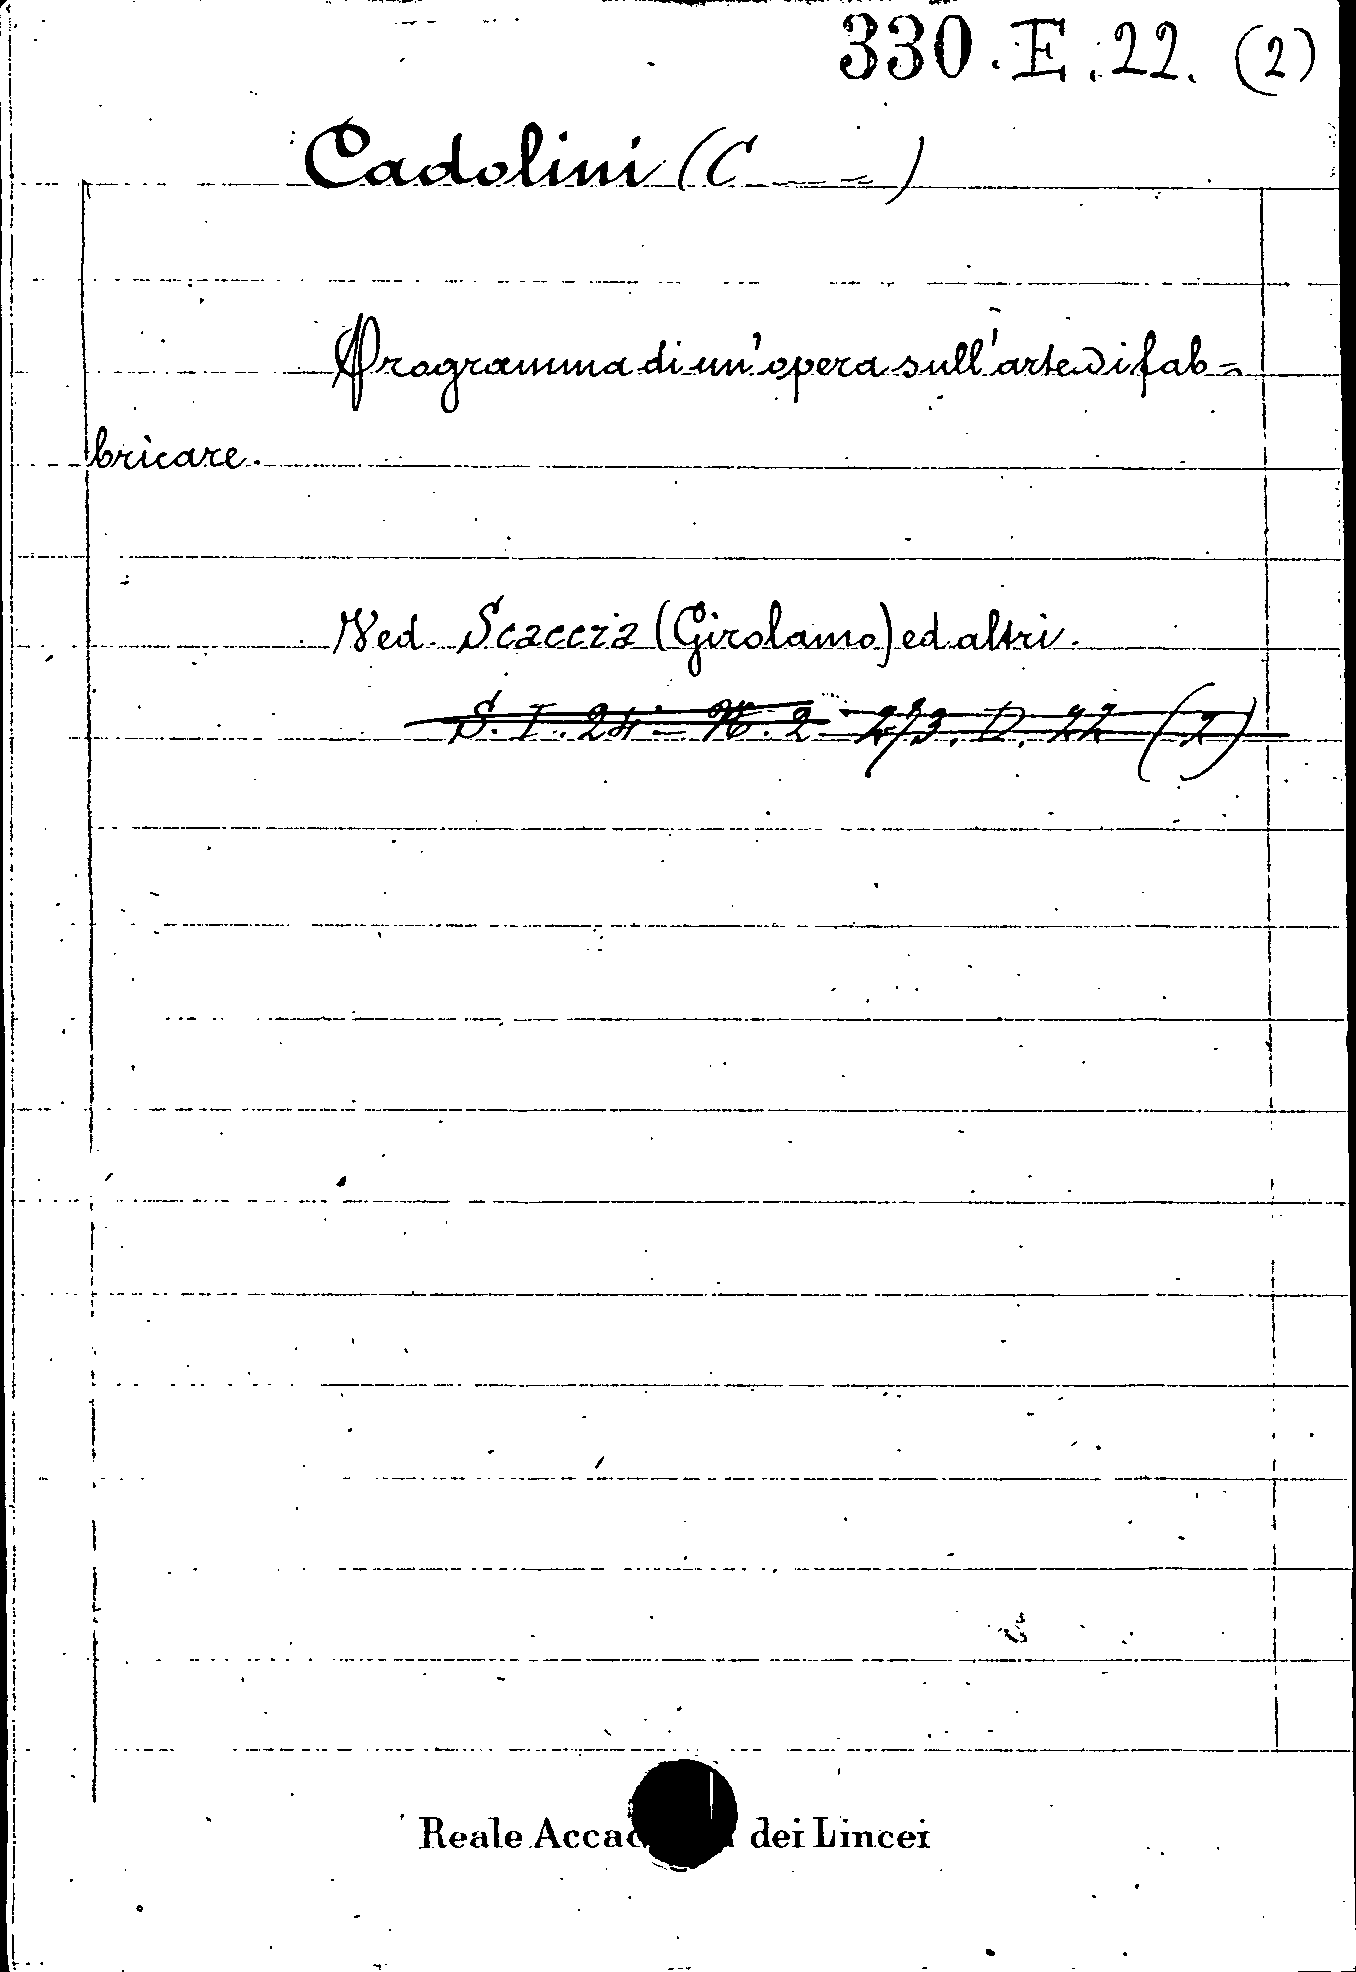 330. E. 22. (2)
Cadolini (C---=)
Programma di un'opera sull'arte di fab=
bricare.
Ved. Scaccia (Girolamo) ed altri.
S. I. 24 = N. 2 273. D. 22 (2)
Reale Accad dei Lincei